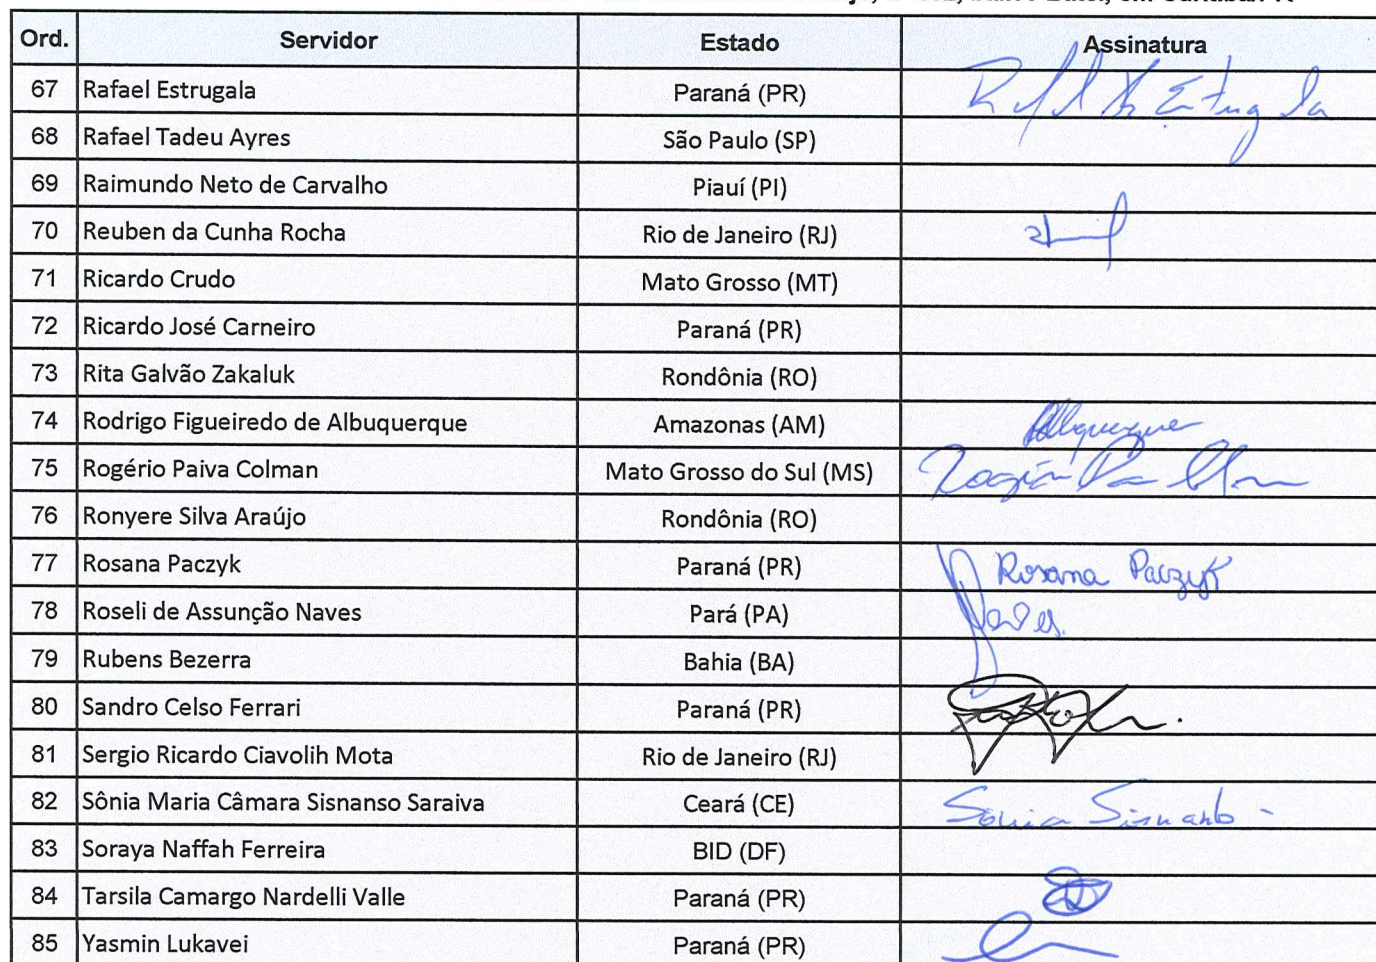 Ord. Servidor Estado Assinatura
67 Rafael Estrugala Paraná (PR)
68 Rafael Tadeu Ayres São Paulo (SP)
69 Raimundo Neto de Carvalho Piauí (PI)
70 Reuben da Cunha Rocha Rio de Janeiro (RJ)
71 Ricardo Crudo Mato Grosso (MT)
72 Ricardo José Carneiro Paraná (PR)
73 Rita Galvão Zakaluk Rondônia (RO)
74 Rodrigo Figueiredo de Albuquerque Amazonas (AM)
75 Rogério Paiva Colman Mato Grosso do Sul (MS)
76 Ronyere Silva Araújo Rondônia (RO)
77 Rosana Paczyk Paraná (PR) Rosana Paczyk
78 Roseli de Assunção Naves Pará (PA)
79 Rubens Bezerra Bahia (BA)
80 Sandro Celso Ferrari Paraná (PR)
81 Sergio Ricardo Ciavolih Mota Rio de Janeiro (RJ)
82 Sônia Maria Câmara Sisnanso Saraiva Ceará (CE)
83 Soraya Naffah Ferreira BID (DF)
84 Tarsila Camargo Nardelli Valle Paraná (PR)
85 Yasmin Lukavei Paraná (PR)